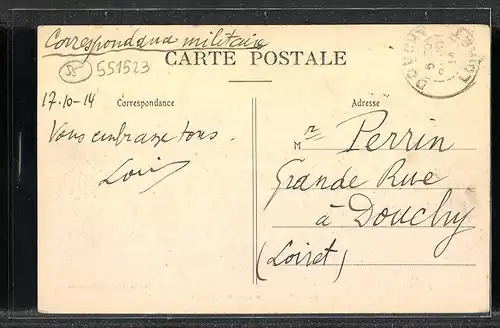 Correspondance militaire
CARTE POSTALE
551523
17-10-14
Correspondance
Adresse
Vous embrasse tous.
Louis
Mr Perrin
Grande Rue
à Douchy
(Loiret)